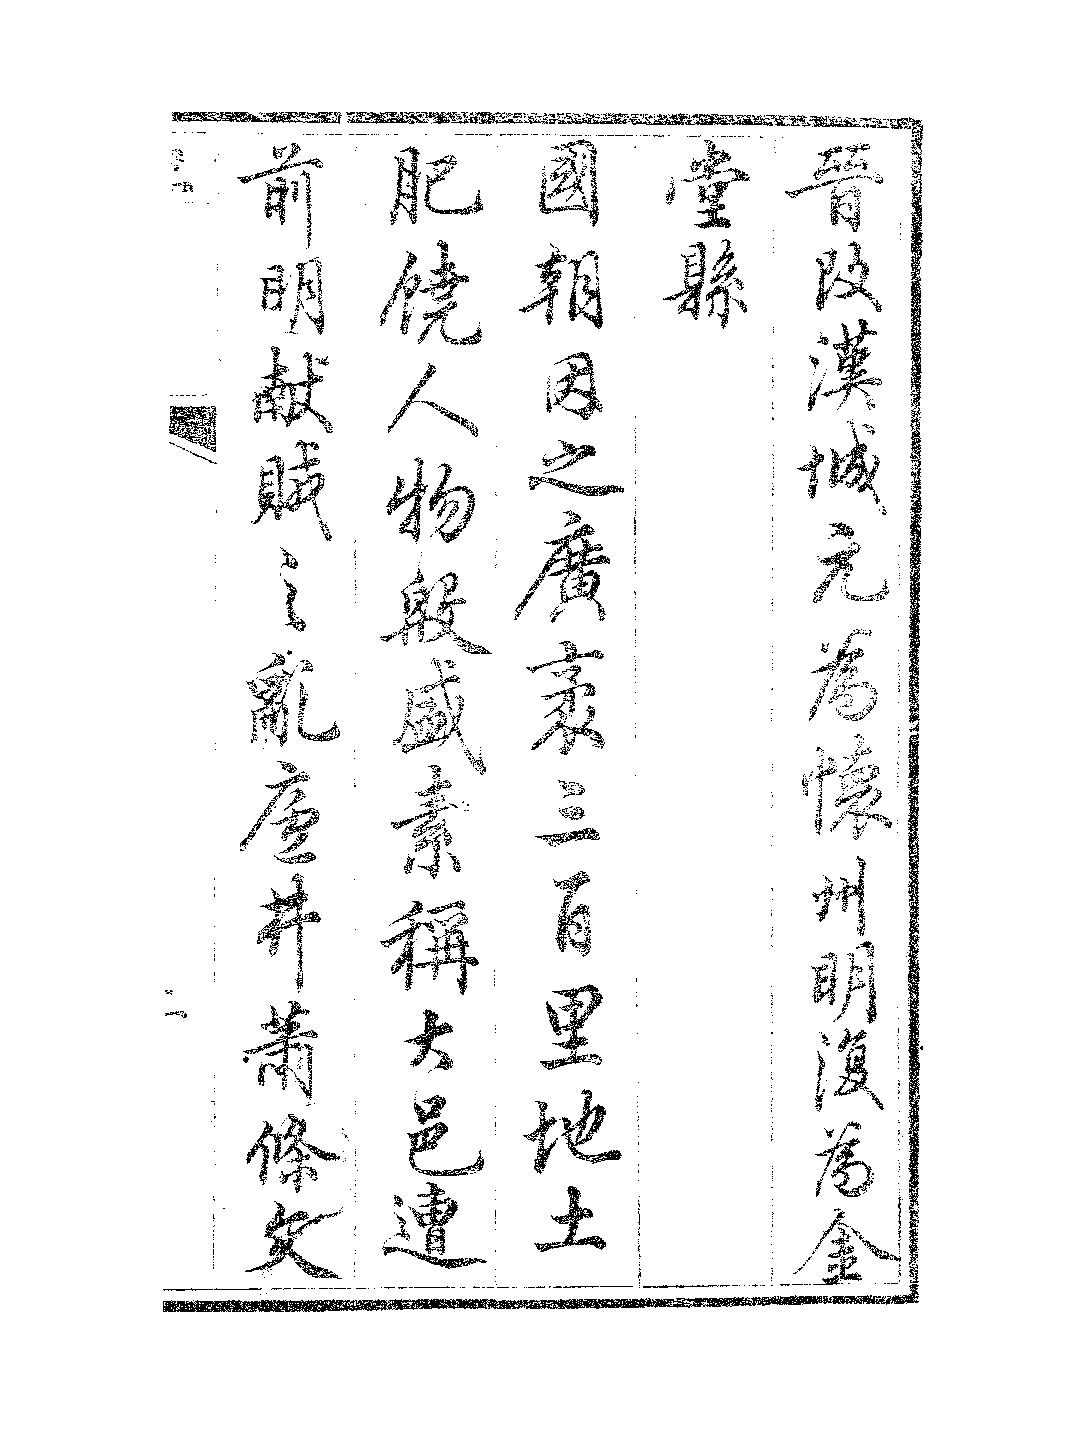 晉改漢城元為懷州明復為金
堂縣
國朝因之廣袤三百里地土
肥饒人物殷盛素稱大邑遭
前明献賊之亂廬井蕭條文